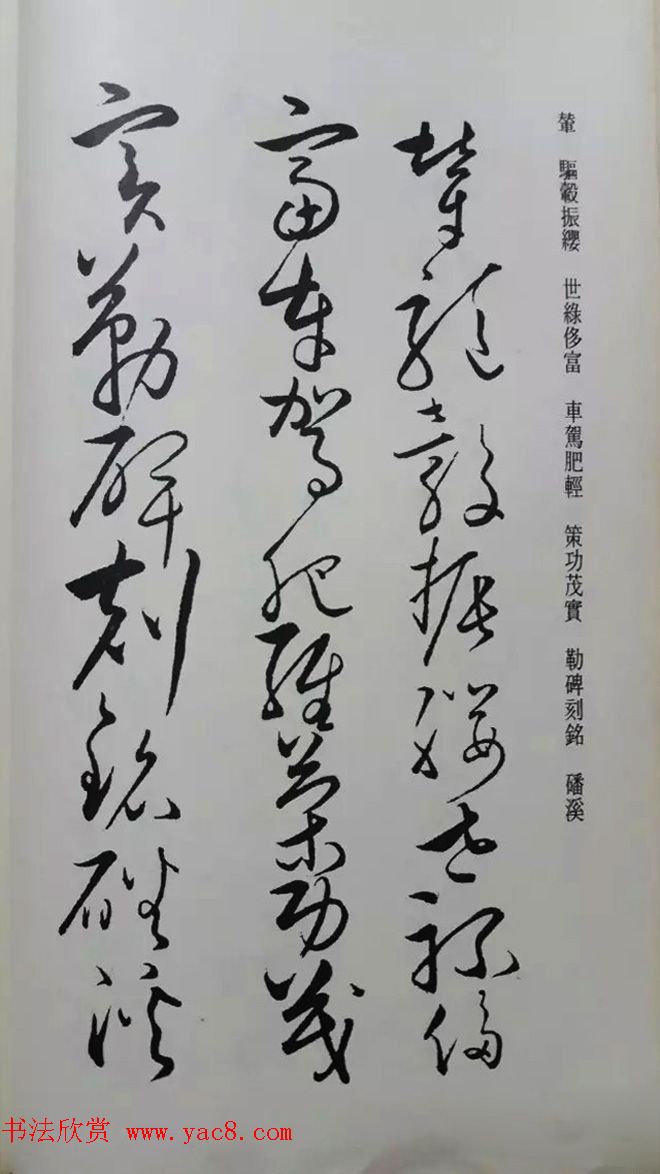 輦 驅轂振纓 世綠侈富 車駕肥輕 策功茂實 勒碑刻銘 磻溪
輦驅轂振纓世祿侈
富車駕肥輕策功茂
實勒碑刻銘磻溪
书法欣赏 www.yac8.com